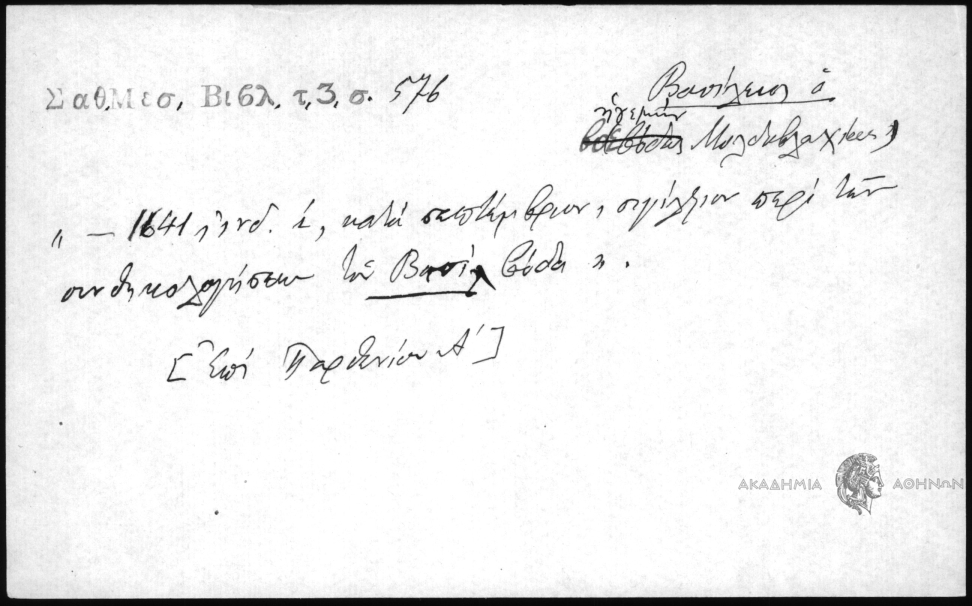 Σαθ, Μεσ, Βιβλ, τ, 3, σ. 576
Βασίλειος ὁ
ἡγεμὼν
βοεβόδας Μολδοβλαχίας
" — 1641, ἰνδ. ί, κατὰ σεπτέμβριον, σιγίλλιον περὶ τῶν
συνθηκολογήσεων τοῦ Βασίλ βόδα ".
[Ἐπὶ Παρθενίου Α']
ΑΚΑΔΗΜΙΑ ΑΘΗΝΩΝ